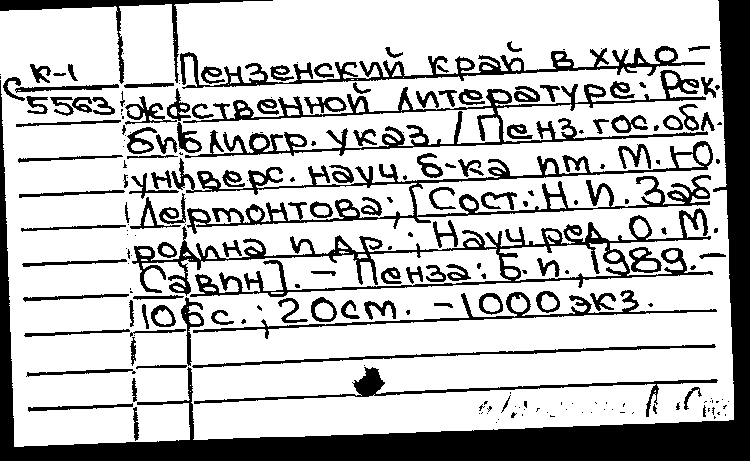 К-1
С 5563
Пензенский край в худо-
жественной литературе: Рек.
библиогр. указ. / Пенз. гос. обл.
универс. науч. б-ка им. М. Ю.
Лермонтова; [Сост.: Н. И. Заб-
родина и др.; Науч. ред. О. М.
Савин]. – Пенза: Б. и., 1989. –
106 с.; 20 см. – 1000 экз.